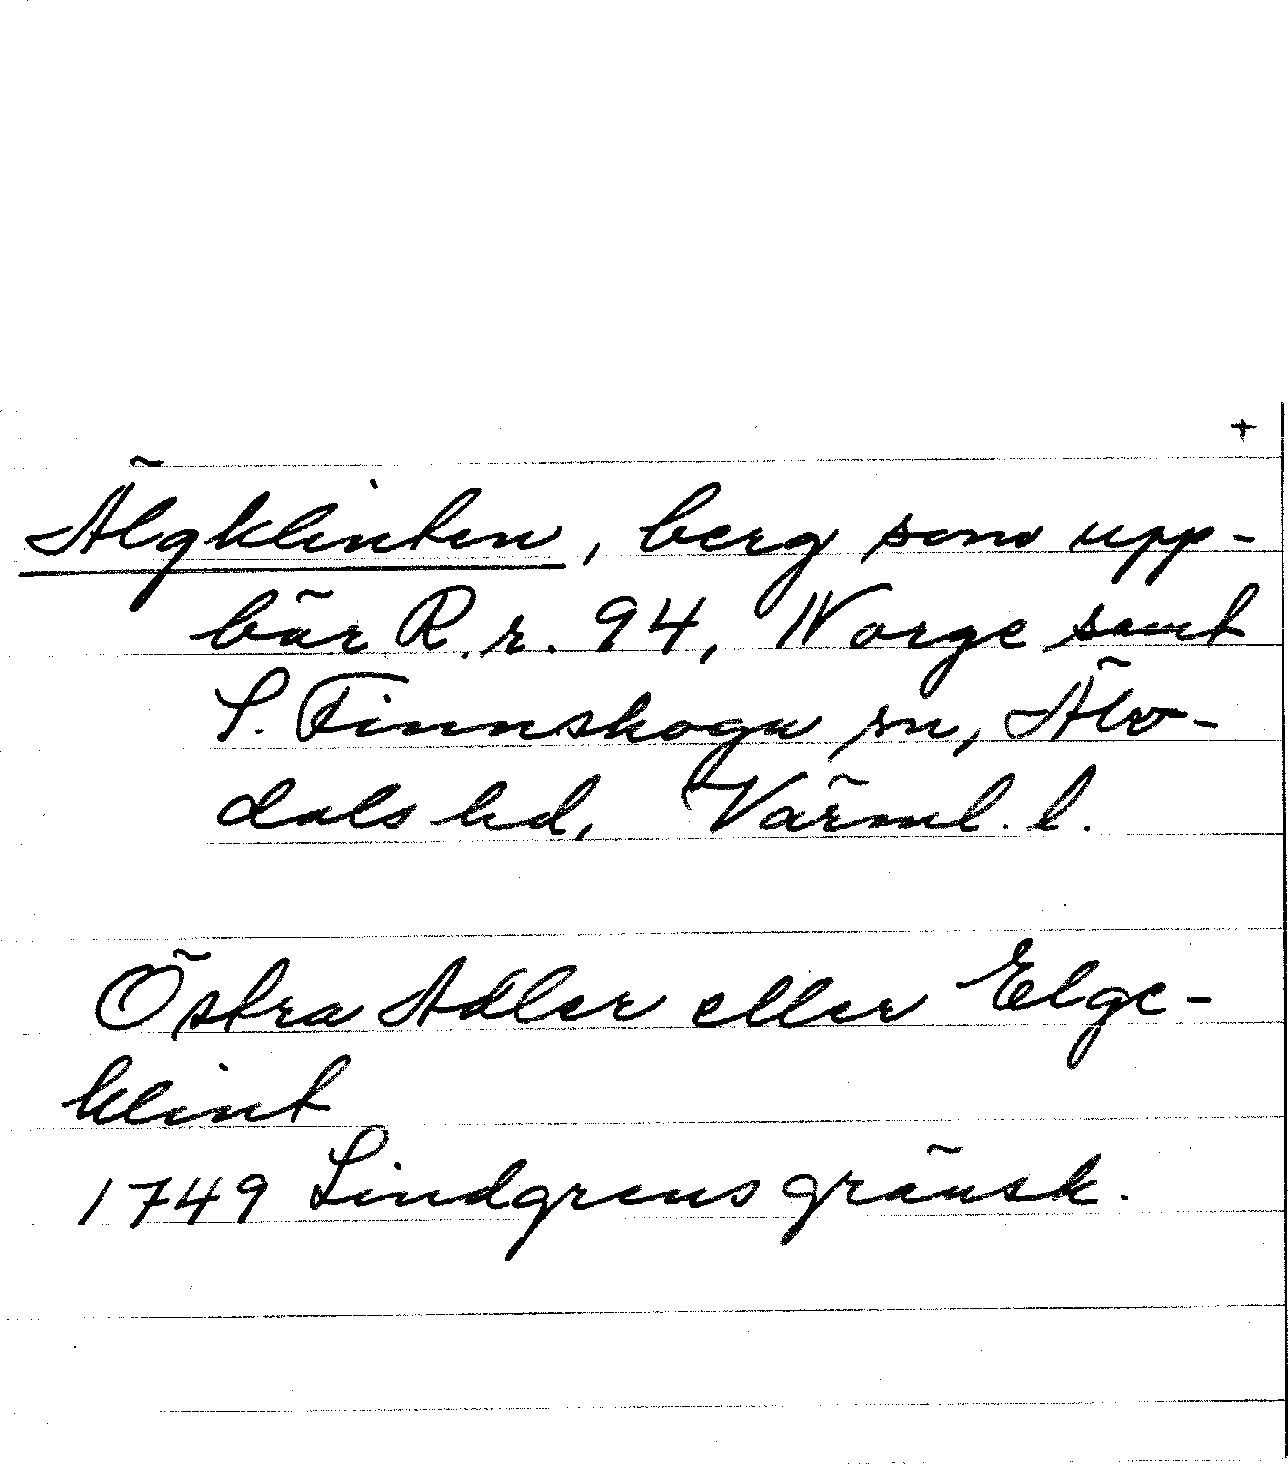 +
Älgklinten, berg som upp-
bär R.r. 94, Norge samt
S. Finnskoga sn, Älv-
dals hd, Värml. l.
Östra Adler eller Elge-
klint
1749 Lindgrens gränsk.